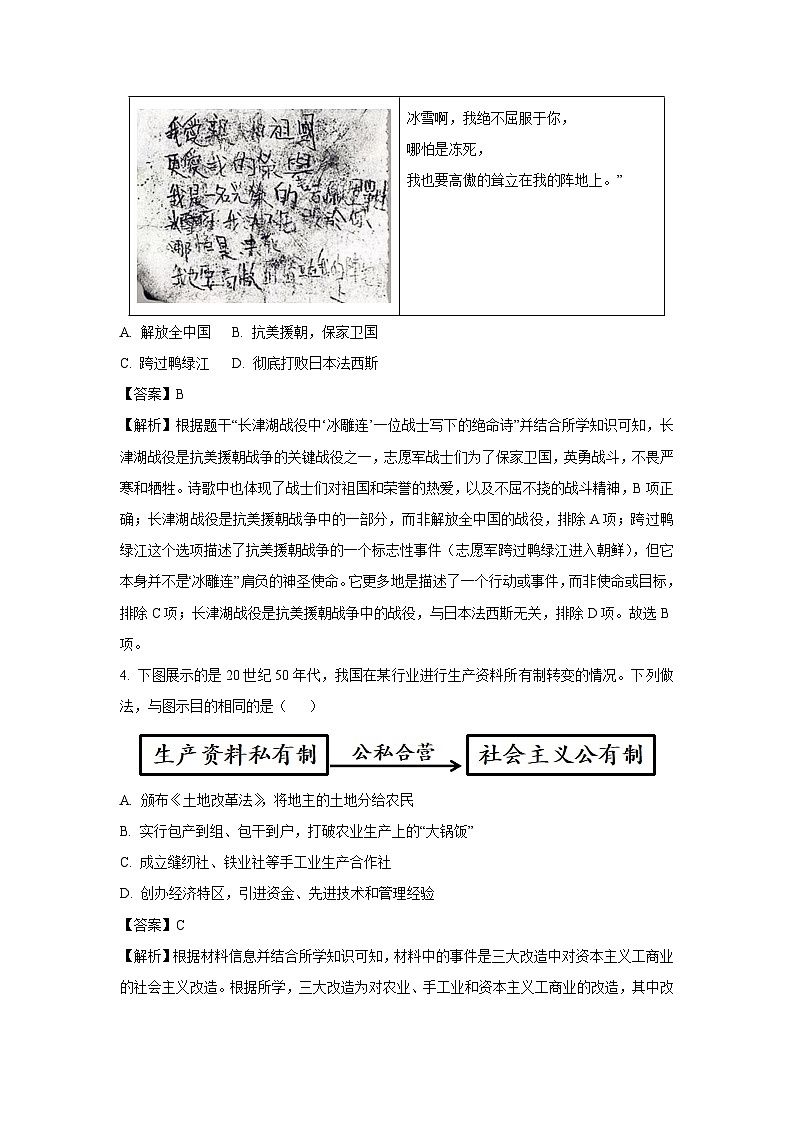 我爱亲 和祖國
更爱我的荣與
我是一名光荣的志愿
冰雪
哪怕是 死
我也要高傲的 立在我的阵
冰雪啊，我绝不屈服于你，
哪怕是冻死，
我也要高傲的耸立在我的阵地上。”
A. 解放全中国 B. 抗美援朝，保家卫国
C. 跨过鸭绿江 D. 彻底打败日本法西斯
【答案】B
【解析】根据题干“长津湖战役中‘冰雕连’一位战士写下的绝命诗”并结合所学知识可知，长
津湖战役是抗美援朝战争的关键战役之一，志愿军战士们为了保家卫国，英勇战斗，不畏严
寒和牺牲。诗歌中也体现了战士们对祖国和荣誉的热爱，以及不屈不挠的战斗精神，B 项正
确；长津湖战役是抗美援朝战争中的一部分，而非解放全中国的战役，排除 A 项；跨过鸭
绿江这个选项描述了抗美援朝战争的一个标志性事件（志愿军跨过鸭绿江进入朝鲜），但它
本身并不是“冰雕连”肩负的神圣使命。它更多地是描述了一个行动或事件，而非使命或目标，
排除 C 项；长津湖战役是抗美援朝战争中的战役，与日本法西斯无关，排除 D 项。故选 B
项。
4. 下图展示的是 20 世纪 50 年代，我国在某行业进行生产资料所有制转变的情况。下列做
法，与图示目的相同的是（ ）
生产资料私有制 公私合营 社会主义公有制
A. 颁布《土地改革法》，将地主的土地分给农民
B. 实行包产到组、包干到户，打破农业生产上的“大锅饭”
C. 成立缝纫社、铁业社等手工业生产合作社
D. 创办经济特区，引进资金、先进技术和管理经验
【答案】C
【解析】根据材料信息并结合所学知识可知，材料中的事件是三大改造中对资本主义工商业
的社会主义改造。根据所学，三大改造为对农业、手工业和资本主义工商业的改造，其中改